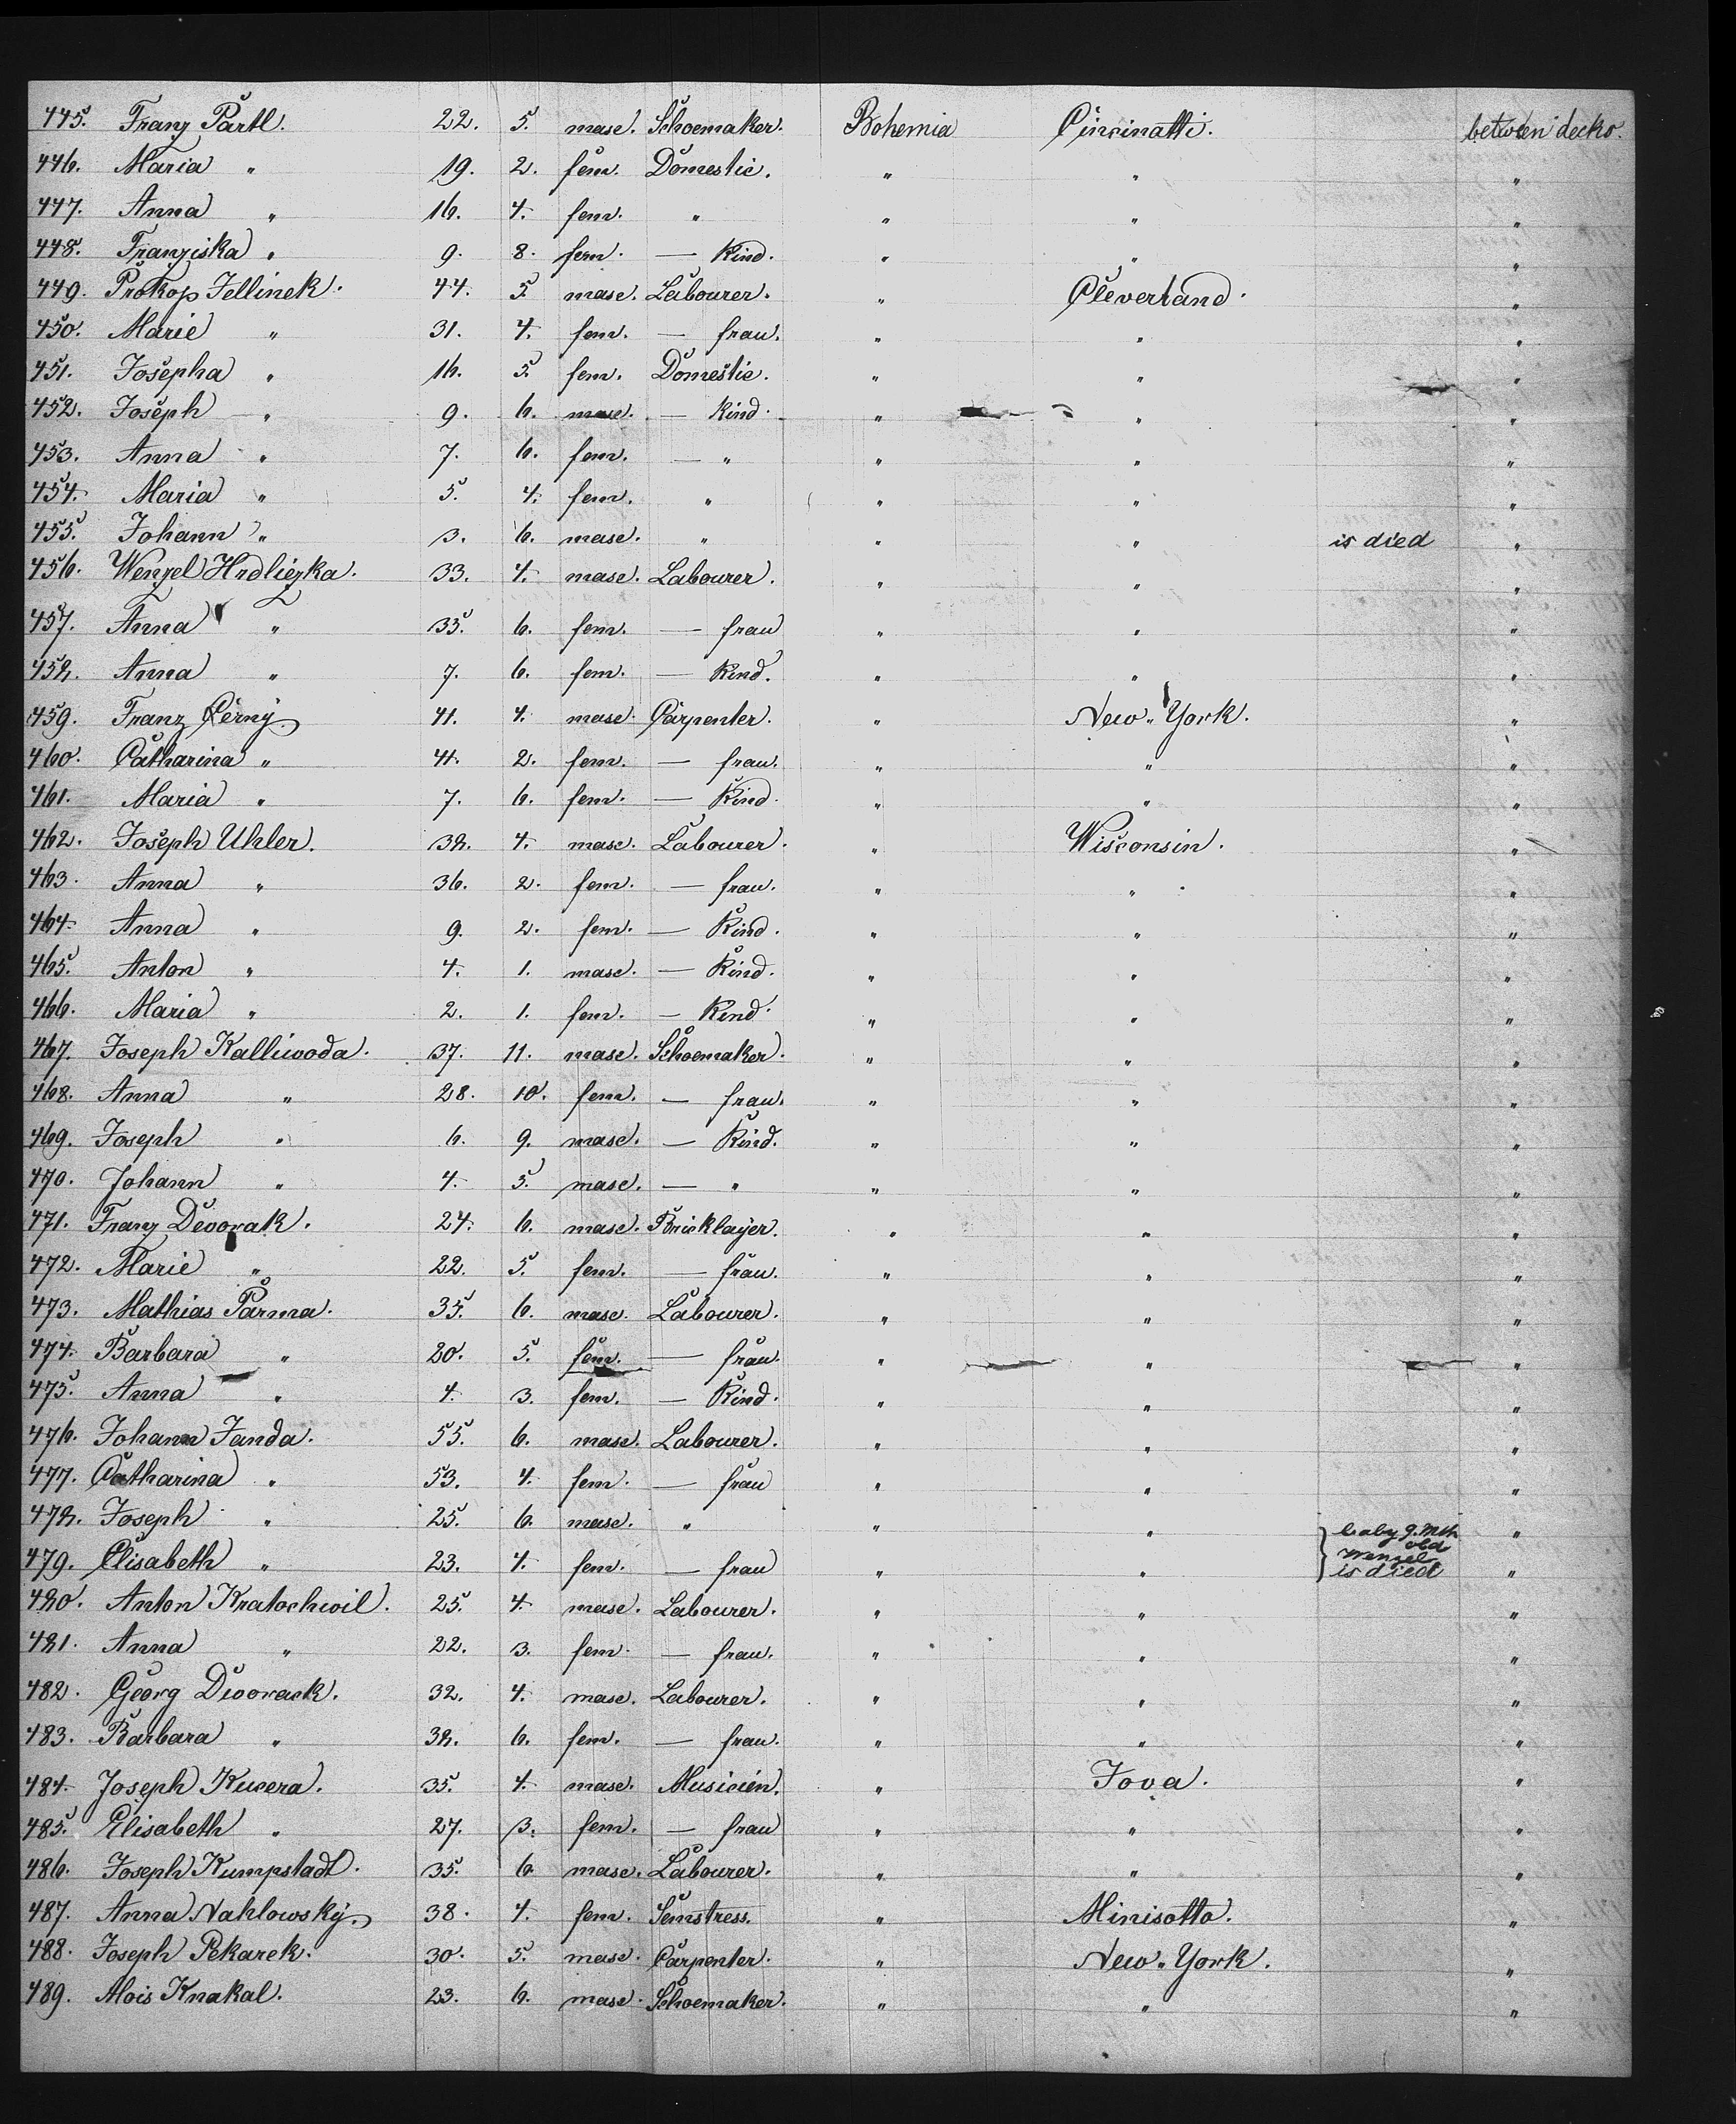 445. Franz Partl. 22. 5. masc. Schoemaker. Bohemia Cincinatti. between decks.
446. Maria " 19. 2. fem. Domestic. " " "
447. Anna " 16. 4. fem. " " " "
448. Franziska " 9. 8. fem. — Kind. " " "
449. Prokop Jellinek. 44. 5. masc. Labourer. " Cleverland. "
450. Marie " 31. 4. fem. — frau. " " "
451. Josepha " 16. 5. fem. Domestic. " " "
452. Joseph " 9. 6. masc. — Kind. " " "
453. Anna " 7. 6. fem. — " " " "
454. Maria " 5. 4. fem. " " " "
455. Johann " 3. 6. masc. " " " is died "
456. Wenzel Hrdliczka. 33. 4. masc. Labourer. " " "
457. Anna " 35. 6. fem. — frau " " "
458. Anna " 7. 6. fem. — Kind. " " "
459. Franz Černy. 41. 4. masc. Carpenter. " New-York. "
460. Catharina " 41. 2. fem. — frau. " " "
461. Maria " 7. 6. fem. — Kind. " " "
462. Joseph Uhler. 38. 4. masc. Labourer. " Wisconsin. "
463. Anna " 36. 2. fem. — frau. " " "
464. Anna " 9. 2. fem. — Kind. " " "
465. Anton " 4. 1. masc. — Kind. " " "
466. Maria " 2. 1. fem. — Kind. " " "
467. Joseph Kalliwoda. 37. 11. masc. Schoemaker. " " "
468. Anna " 28. 10. fem. — frau. " " "
469. Joseph " 6. 9. masc. — Kind. " " "
470. Johann " 4. 5. masc. — " " " "
471. Franz Devorak. 24. 6. masc. Bricklayer. " " "
472. Marie " 22. 5. fem. — frau. " " "
473. Mathias Parma. 35. 6. masc. Labourer. " " "
474. Barbara " 20. 5. fem. — frau. " " "
475. Anna " 4. 3. fem. — Kind. " " "
476. Johann Janda. 55. 6. masc. Labourer. " " "
477. Catharina " 53. 4. fem. — frau " " "
478. Joseph " 25. 6. masc. " " " baby 9. Mth "
old
479. Elisabeth " 23. 4. fem. — frau " " Wenzel is died "
480. Anton Kratochwil. 25. 4. masc. Labourer. " " "
481. Anna " 22. 3. fem. — frau. " " "
482. Georg Dworack. 32. 4. masc. Labourer. " " "
483. Barbara " 38. 6. fem. — frau. " " "
484. Joseph Kucera. 35. 4. masc. Musicien. " Jova. "
485. Elisabeth " 27. 3. fem. — frau " " "
486. Joseph Kumpstadt. 35. 6. masc. Labourer. " " "
487. Anna Nahlowsky. 38. 4. fem. Semstress. " Minisotto. "
488. Joseph Pekarek. 30. 5. masc. Carpenter. " New-York. "
489. Alois Knakal. 23. 6. masc. Schoemaker. " " "